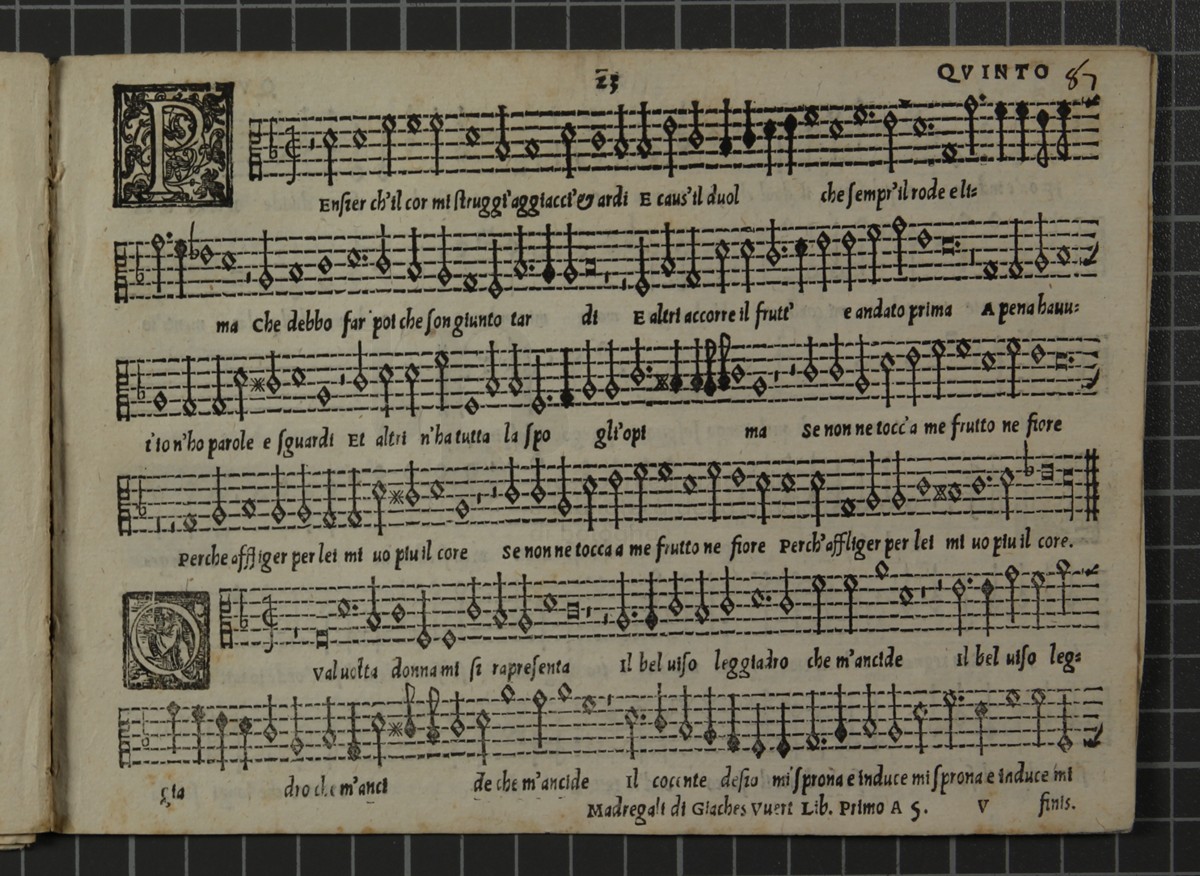 23 QVINTO 87
P Ensier ch'il cor mi struggi'aggiacci'& ardi E caus'il duol che sempr'il rode e li=
ma Che debbo far' poi che son giunto tar di E altri accorre il frutt' e andato prima A pena hauu=
t'io n'ho parole e sguardi Et altri n'ha tutta la spo gli'opi ma Se non ne tocc'a me frutto ne fiore
Perche affliger per lei mi uo piu il core Se non ne tocca a me frutto ne fiore Perch'affliger per lei mi uo piu il core.
Q Val uolta donna mi si rapresenta Il bel uiso leggiadro che m'ancide Il bel uiso leg=
gia dro che m'anci de che m'ancide Il cocente desio mi sprona e induce mi sprona e induce mi
Madregali di Giaches Vuert Lib. Primo A 5. V finis.